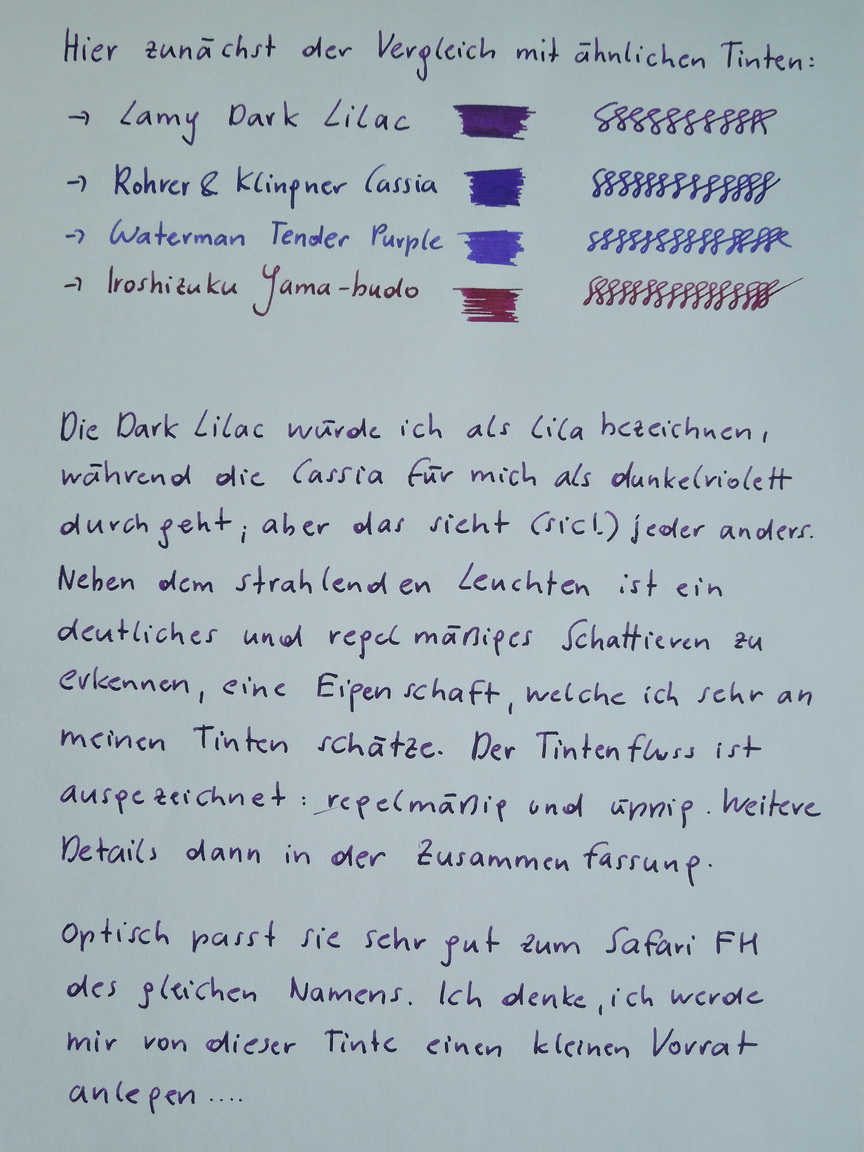 Hier zunächst der Vergleich mit ähnlichen Tinten:
→ Lamy Dark Lilac
→ Rohrer & Klingner Cassia
→ Waterman Tender Purple
→ Iroshizuku Yama-budo
Die Dark Lilac würde ich als lila bezeichnen,
während die Cassia für mich als dunkelviolett
durchgeht; aber das sieht (sic!) jeder anders.
Neben dem strahlenden Leuchten ist ein
deutliches und regelmäßiges Schattieren zu
erkennen, eine Eigenschaft, welche ich sehr an
meinen Tinten schätze. Der Tintenfluss ist
ausgezeichnet: regelmäßig und üppig. Weitere
Details dann in der Zusammenfassung.
Optisch passt sie sehr gut zum Safari FH
des gleichen Namens. Ich denke, ich werde
mir von dieser Tinte einen kleinen Vorrat
anlegen ....